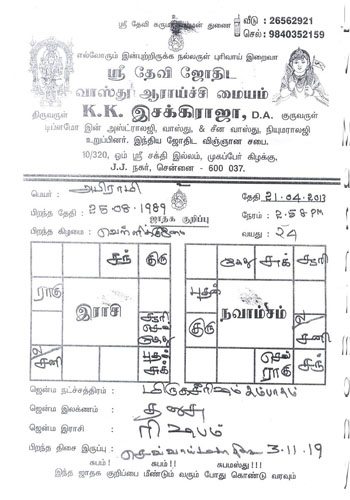 ஸ்ரீ தேவி கரு துணை
வீடு : 26562921
செல் : 9840352159
எல்லோரும் இன்புற்றிருக்க நல்லருள் புரிவாய் இறைவா
ஸ்ரீ தேவி ஜோதிட
வாஸ்து ஆராய்ச்சி மையம்
திருவருள் K.K. இசக்கிராஜா, D.A. குருவருள்
டிப்ளமோ இன் அஸ்ட்ராலஜி, வாஸ்து, & சீன வாஸ்து, நியுமராலஜி
உறுப்பினர். இந்திய ஜோதிட விஞ்ஞான சபை.
10/320, ஓம் ஸ்ரீ சக்தி இல்லம், முகப்பேர் கிழக்கு,
J.J. நகர், சென்னை - 600 037.
பெயர் : அபிராமி
தேதி 21-04-2013
பிறந்த தேதி : 25-08-1989
ஜாதக குறிப்பு
நேரம் : 2-58 PM
பிறந்த கிழமை : வெள்ளிக்கிழமை
வயது : 24
சந் குரு
ராகு
இராசி
சூரி
செவ்
கேது
புத
சுக்
ல
சனி
கேது சுக் சூரி
புதன்
குரு
நவாம்சம்
ல
சனி
செவ்
ராகு
சந்
ஜென்ம நட்சத்திரம் : மிருகசீரிஷம் 2ம்பாதம்
ஜென்ம இலக்னம் : தனுசு
ஜென்ம இராசி : ரிஷபம்
பிறந்த திசை இருப்பு : செவ்வாய் 3-11-19
சுபம்! சுபம்!! சுபமஸ்து!!!
இந்த ஜாதக குறிப்பை மீண்டும் வரும் போது கொண்டு வரவும்